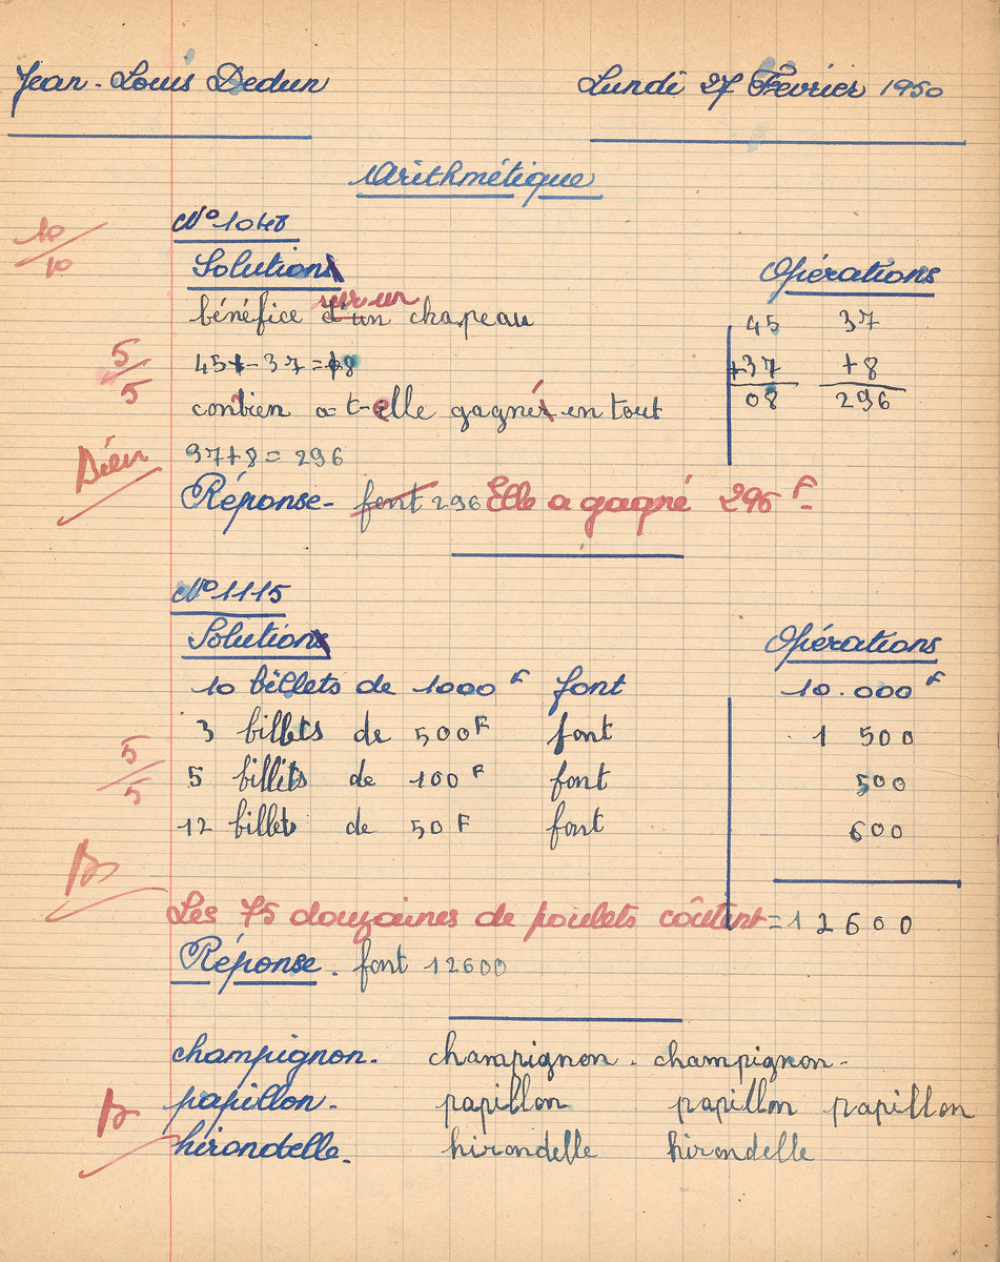 Jean-Louis Dedun Lundi 27 Février 1950
Arithmétique
N° 1048
10/10
Solution Opérations
bénéfice d'un sur un chapeau 45 37
5/5 45 - 37 = 8 +37 +8
08 296
conbien a-t-elle gagné en tout
Bien 37+8 = 296
Réponse - font 296 Elle a gagné 296 F
N° 1115
Solution Opérations
10 billets de 1000 F font 10.000 F
3 billets de 500 F font 1 500
5/5 5 billets de 100 F font 500
12 billets de 50 F font 600
B
Les 75 douzaines de poulets coûtent = 12600
Réponse. font 12600
champignon. champignon. champignon-
B papillon. papillon papillon papillon
hirondelle. hirondelle hirondelle